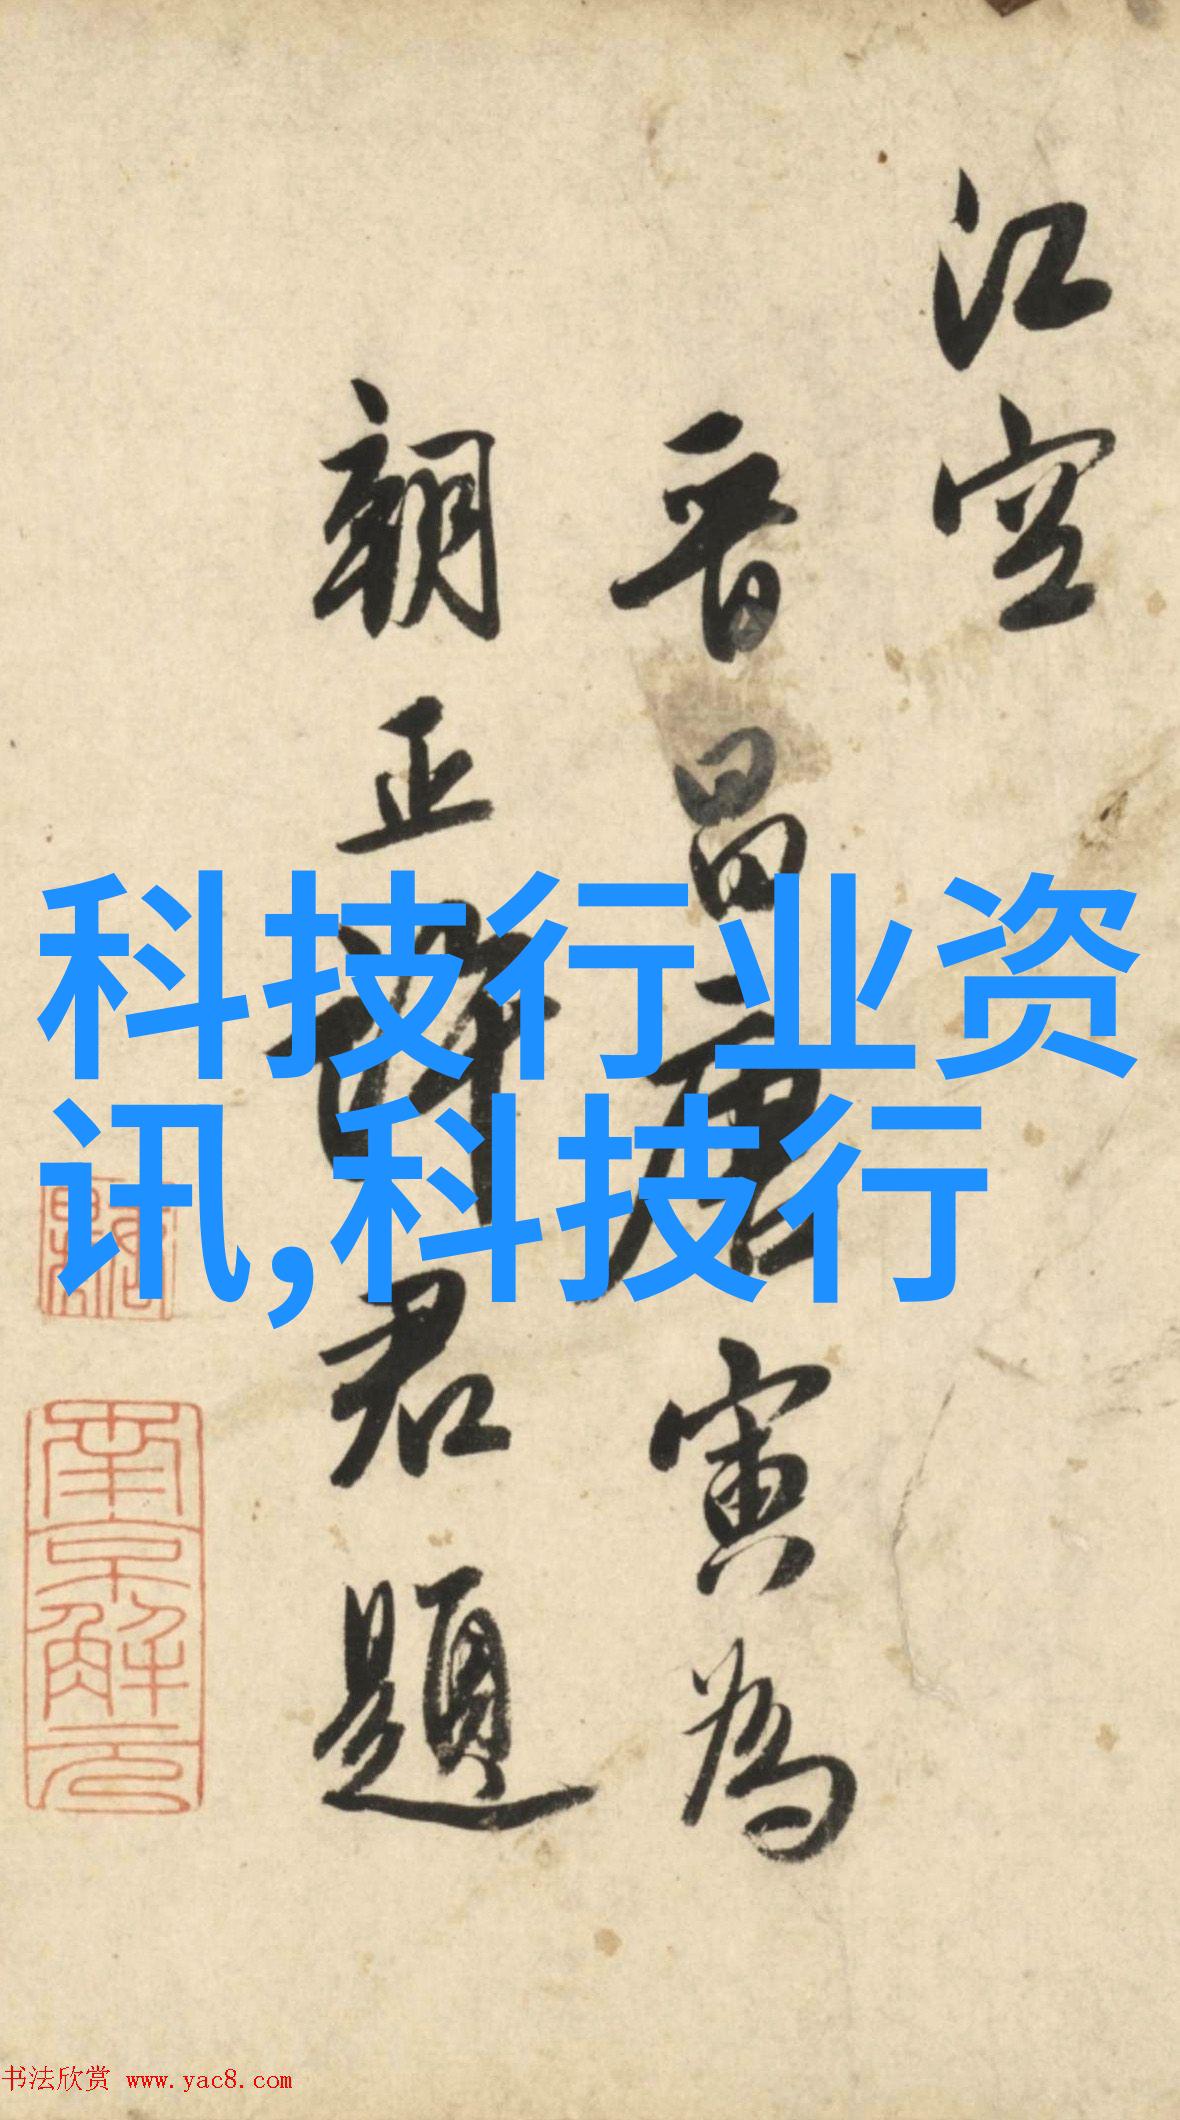 江空
晋昌唐寅為
朝正君題
科技行业资
讯,科技行
南京解元
书法欣赏 www.yac8.com